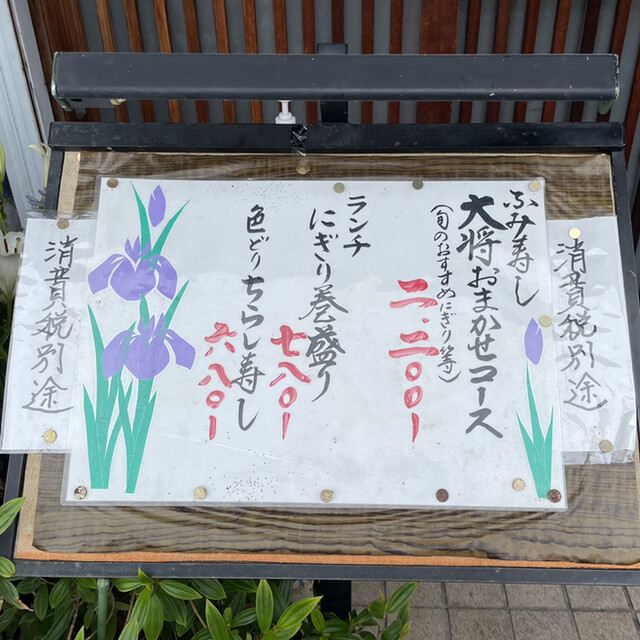 消費税別途
ふみ寿し
大将おまかせコース
(旬のおすすめにぎり等)
二.二〇〇ー
ランチ
にぎり巻盛り
七八〇ー
色どりちらし寿し
六八〇ー
消費税別途